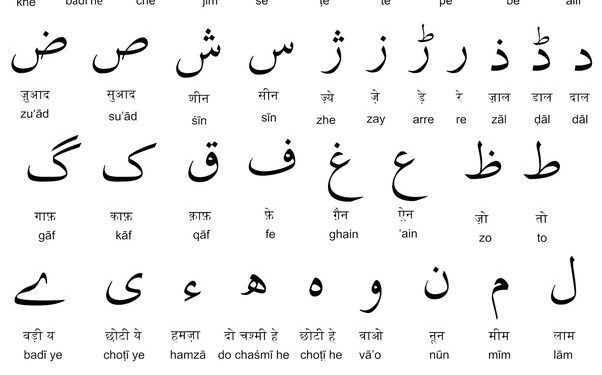 khe he che se te pe be
د ڈ ذ ر ڑ ز ژ س ش ص ض
ज़ुआद सुआद शीन सीन ज़्ये ज़े ड़े रे ज़ाल डाल दाल
zu'ād su'ād śīn sīn zhe zay arre re zāl ḍāl dāl
ط ظ ع غ ف ق ک گ
गाफ़ काफ़ क़ाफ़ फ़े ग़ैन ऐन ज़ो तो
gāf kāf qāf fe ghain 'ain zo to
ل م ن و ہ ھ ء ی ے
बड़ी य छोटी ये हमज़ा दो चश्मी हे छोटी हे वाओ नून मीम लाम
badī ye choṭī ye hamzā do chaśmī he choṭī he vā'o nūn mīm lām